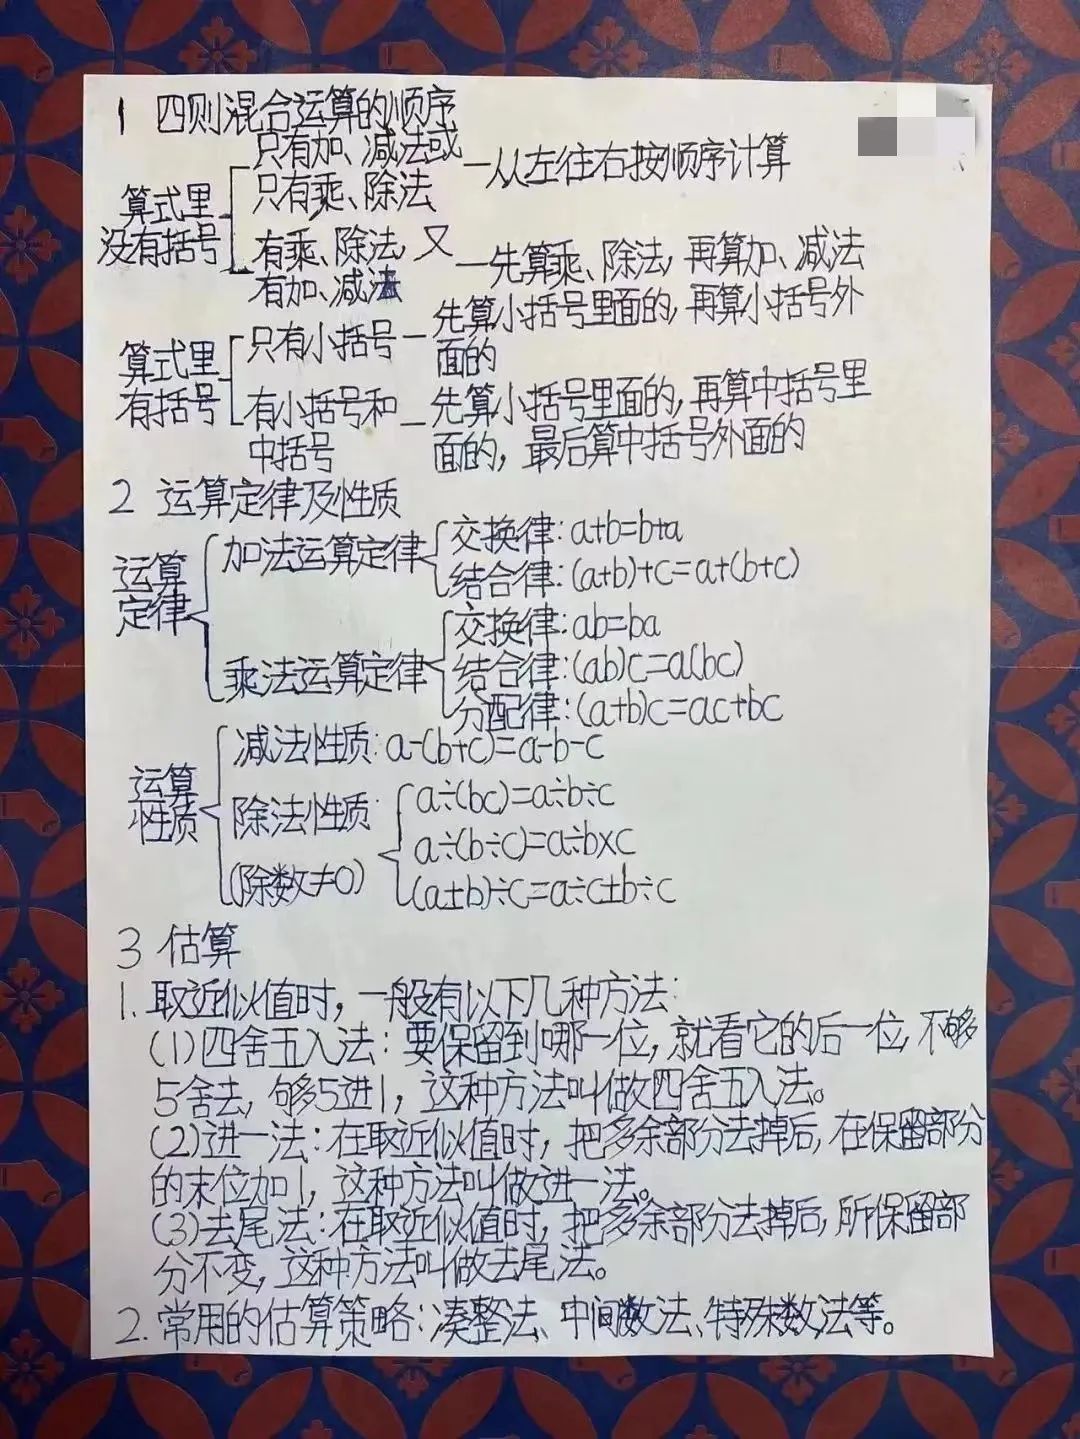 1 四则混合运算的顺序
算式里没有括号
只有加、减法或只有乘、除法—从左往右按顺序计算
有乘、除法,又有加、减法—先算乘、除法,再算加、减法
算式里有括号
只有小括号—先算小括号里面的,再算小括号外面的
有小括号和中括号—先算小括号里面的,再算中括号里面的,最后算中括号外面的
2 运算定律及性质
运算定律
加法运算定律
交换律:a+b=b+a
结合律:(a+b)+c=a+(b+c)
乘法运算定律
交换律:ab=ba
结合律:(ab)c=a(bc)
分配律:(a+b)c=ac+bc
运算性质
减法性质:a-(b+c)=a-b-c
除法性质:
(除数≠0)
a÷(bc)=a÷b÷c
a÷(b÷c)=a÷b×c
(a±b)÷c=a÷c±b÷c
3 估算
1.取近似值时,一般有以下几种方法:
(1)四舍五入法:要保留到哪一位,就看它的后一位,不够
5舍去,够5进1,这种方法叫做四舍五入法。
(2)进一法:在取近似值时,把多余部分去掉后,在保留部分
的末位加1,这种方法叫做进一法。
(3)去尾法:在取近似值时,把多余部分去掉后,所保留部
分不变,这种方法叫做去尾法。
2.常用的估算策略:凑整法、中间数法、特殊数法等。